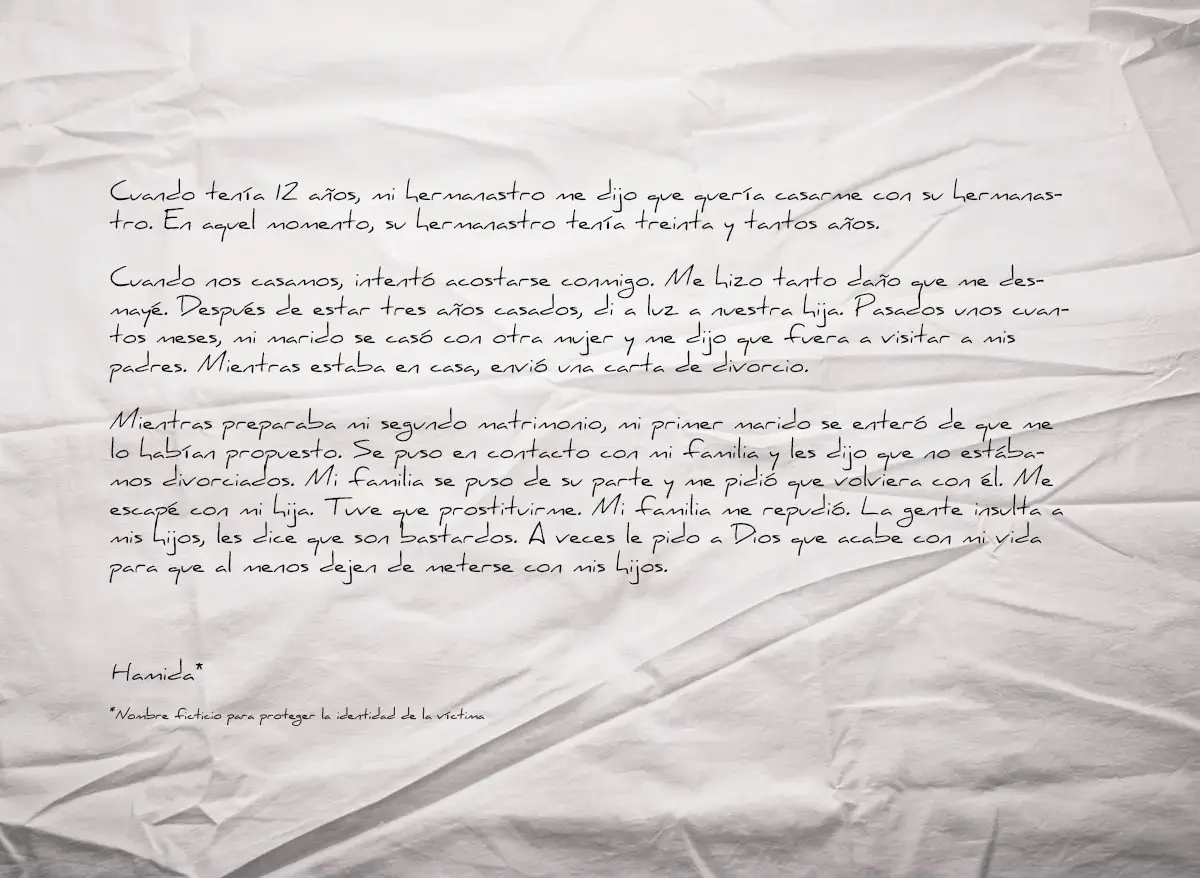 Cuando tenía 12 años, mi hermanastro me dijo que quería casarme con su hermanas-
tro. En aquel momento, su hermanastro tenía treinta y tantos años.
Cuando nos casamos, intentó acostarse conmigo. Me hizo tanto daño que me des-
mayé. Después de estar tres años casados, di a luz a nuestra hija. Pasados unos cuan-
tos meses, mi marido se casó con otra mujer y me dijo que fuera a visitar a mis
padres. Mientras estaba en casa, envió una carta de divorcio.
Mientras preparaba mi segundo matrimonio, mi primer marido se enteró de que me
lo habían propuesto. Se puso en contacto con mi familia y les dijo que no estába-
mos divorciados. Mi familia se puso de su parte y me pidió que volviera con él. Me
escapé con mi hija. Tuve que prostituirme. Mi familia me repudió. La gente insulta a
mis hijos, les dice que son bastardos. A veces le pido a Dios que acabe con mi vida
para que al menos dejen de meterse con mis hijos.
Hamida*
*Nombre ficticio para proteger la identidad de la víctima